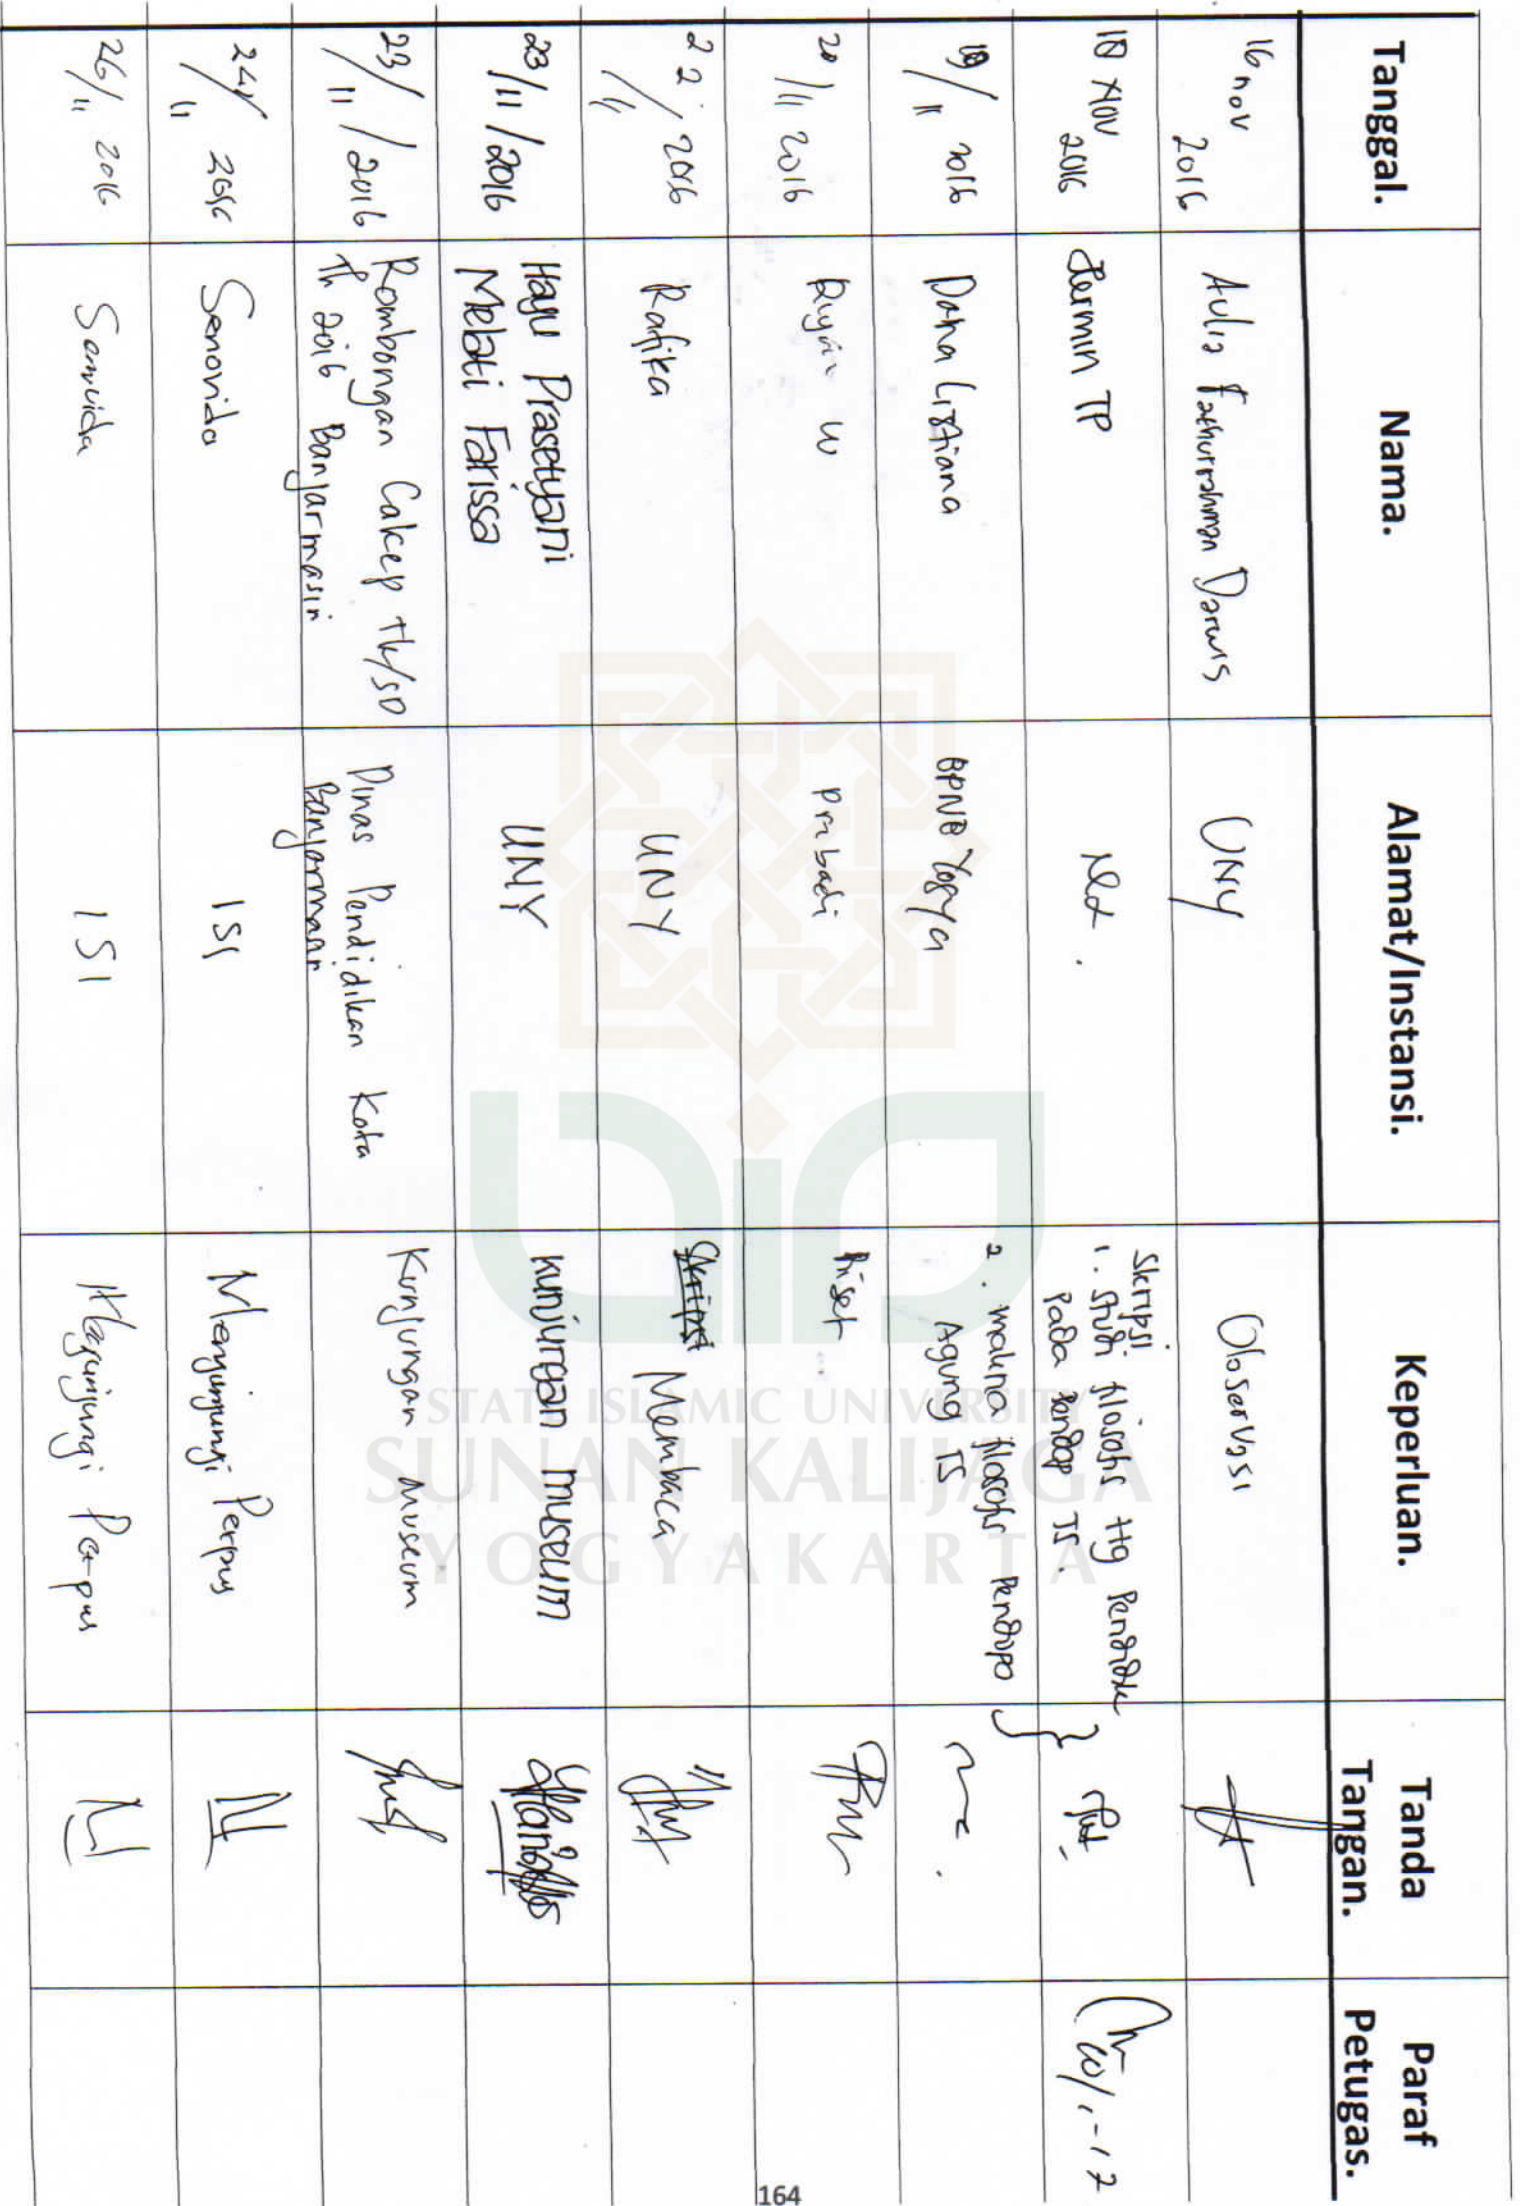 Tanggal. Nama. Alamat/Instansi. Keperluan. Tanda Tangan. Paraf Petugas.
16 nov 2016 Aulia Fathurrahman Darwis UNY Observasi
18 Nov 2016 Hermin TP Skripsi
1. Studi filosofis ttg Pendidk
pada Pendop TS.
19/11 2016 Dana Listiana BPNB Yogya 2. makna filosofis Pendopo
Agung TS
20/11 2016 W Pribadi Riset
22/11 2016 Rafika UNY Skripsi Membaca
23/11/2016 Hayu Prasetyani UNY kunjungan museum
Melati Farissa
23/11/2016 Rombongan Cakep TK/SD Dinas Pendidikan Kota Kunjungan Museum
Th 2016 Banjarmasin Banjarmasin
24/11 2016 Senovida ISI Mengunjungi Perpus
26/11 2016 ISI Mengunjungi Perpus
STATE ISLAMIC UNIVERSITY
SUNAN KALIJAGA
YOGYAKARTA
164